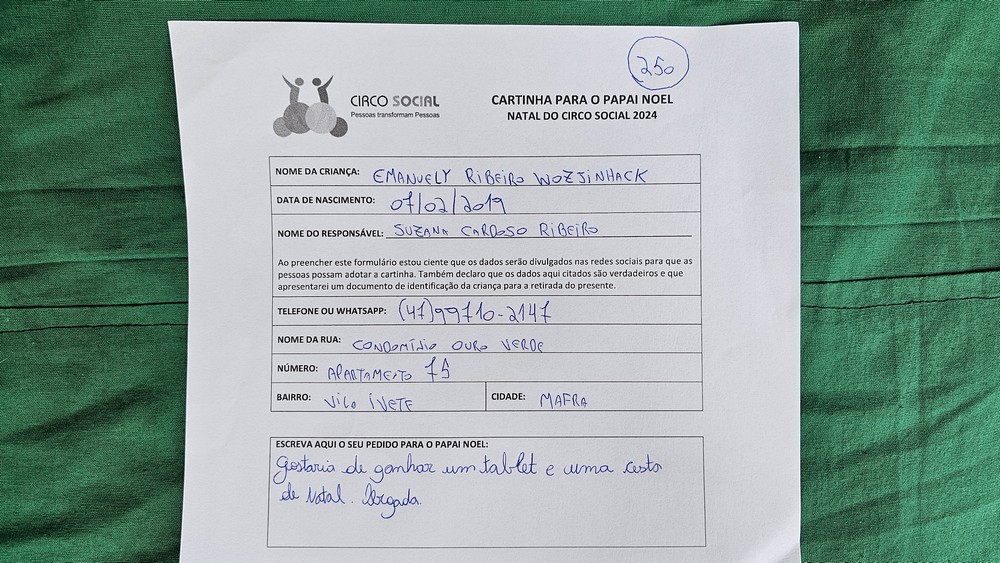 250
CIRCO SOCIAL
Pessoas transformam Pessoas
CARTINHA PARA O PAPAI NOEL
NATAL DO CIRCO SOCIAL 2024
NOME DA CRIANÇA: EMANUELY RIBEIRO WOZJINHACK
DATA DE NASCIMENTO: 07/02/2019
NOME DO RESPONSÁVEL: SUZANA CARDOSO RIBEIRO
Ao preencher este formulário estou ciente que os dados serão divulgados nas redes sociais para que as
pessoas possam adotar a cartinha. Também declaro que os dados aqui citados são verdadeiros e que
apresentarei um documento de identificação da criança para a retirada do presente.
TELEFONE OU WHATSAPP: (47)99710-2147
NOME DA RUA: CONDOMÍNIO OURO VERDE
NÚMERO: APARTAMENTO 75
BAIRRO: Vila ÍVETE CIDADE: MAFRA
ESCREVA AQUI O SEU PEDIDO PARA O PAPAI NOEL:
Gostaria de ganhar um tablet e uma cesta
de Natal. Obrgada